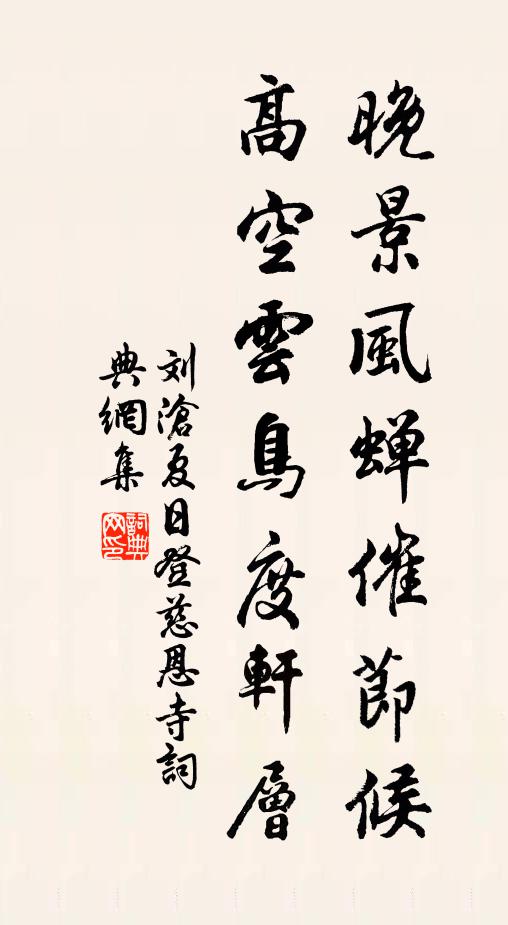 晚景風蝉催節候
高空雲鳥度軒層
刘滄夏日登慈恩寺詞
典網集
詞典網印